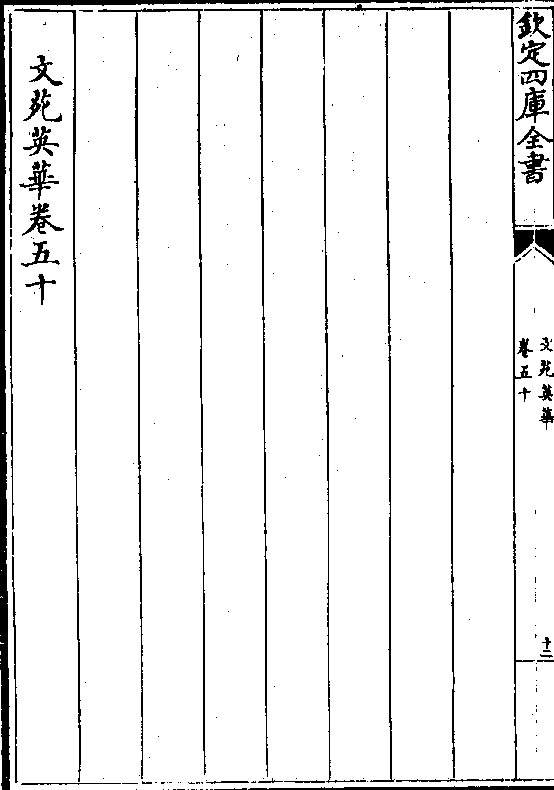 欽定四庫全書
文苑英華
卷五十
十二
文苑英華卷五十